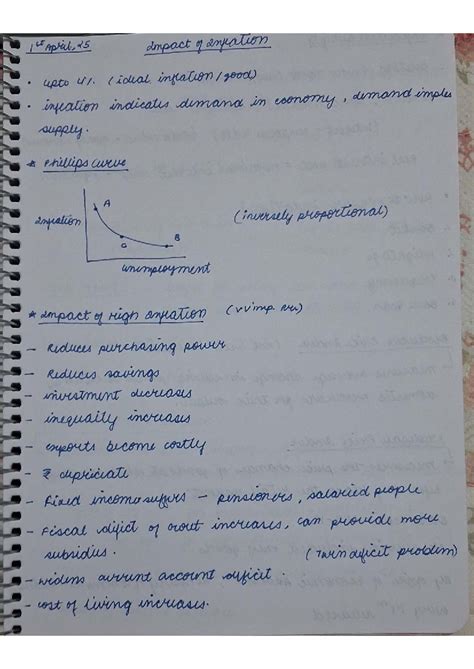 1st April, 25
Impact of Inflation
• upto 4%. (ideal inflation / good)
• inflation indicates demand in economy, demand implies
supply.
* Phillips curve
A
Inflation
(inversely proportional)
B
unemployment
* Impact of High Inflation (vvimp
– Reduces purchasing power
– Reduces savings
– investment decreases
– inequality increases
– exports become costly
– ₹ depriciate
– Fixed income suffers – pensioners, salaried people
– Fiscal deficit of govt increases, can provide more
subsidies. (Twin deficit problem)
– widens current account deficit.
– cost of living increases.